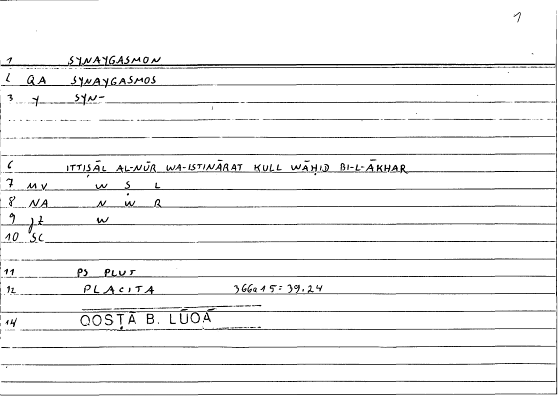 1
1 SYNAYGASMON
2 QA SYNAYGASMOS
3 Y SYN-
6 ITTIṢĀL AL-NŪR WA-ISTINĀRAT KULL WĀḤID BI-L-ĀKHAR
7 MV W Ṣ L
8 NA N W R
9 W
10 SC
11 PS PLUT
12 PLACITA 366a15=39.24
14 QOSṬĀ B. LŪQĀ